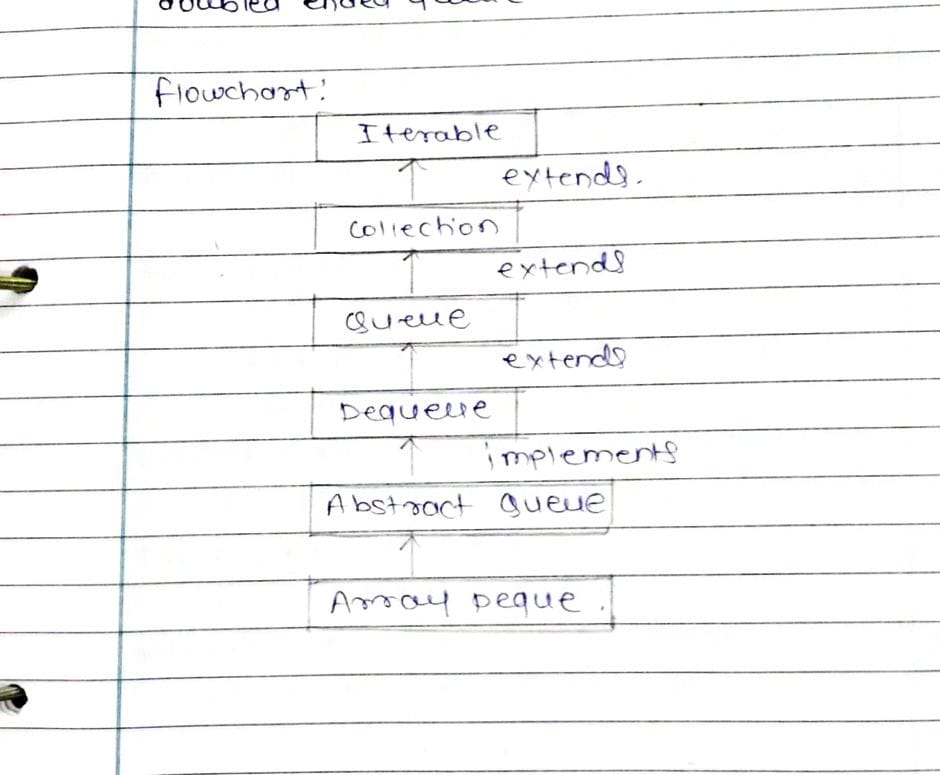 doubled ended queue
flowchart:
Iterable
extends.
Collection
extends
Queue
extends
Dequeue
implements
Abstract Queue
Array Deque.